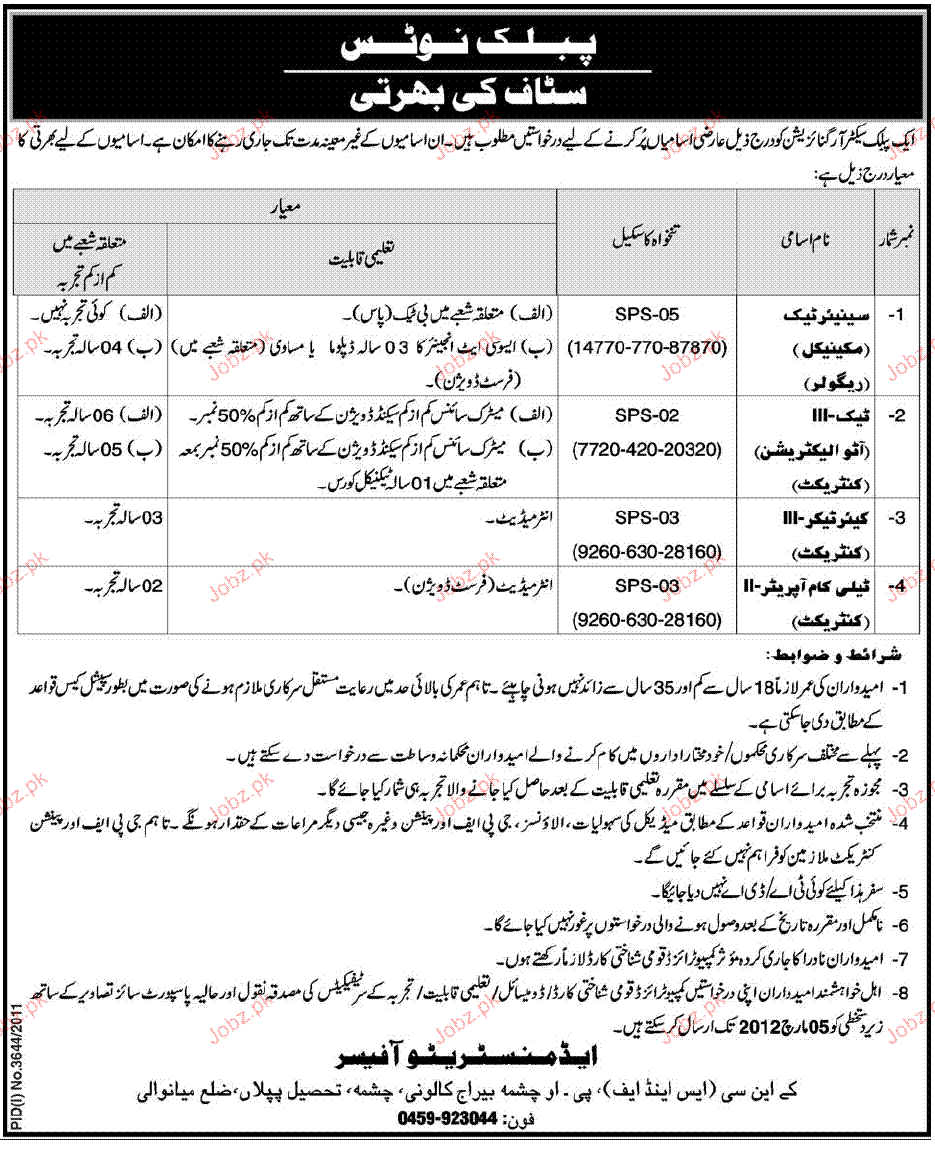 پبلک نوٹس
سٹاف کی بھرتی
ایک پبلک سیکٹر آرگنائزیشن کو درج ذیل عارضی اسامیاں پُر کرنے کے لیے درخواستیں مطلوب ہیں۔ ان اسامیوں کے غیر معینہ مدت تک جاری رہنے کا امکان ہے۔ اسامیوں کے لیے بھرتی کا
معیار درج ذیل ہے:
نمبر شمار
نام اسامی
تنخواہ کا سکیل
معیار
تعلیمی قابلیت
متعلقہ شعبے میں
کم از کم تجربہ
1- سینیئر ٹیک SPS-05 (الف) متعلقہ شعبے میں بی ٹیک (پاس)۔ (الف) کوئی تجربہ نہیں۔
(مکینیکل) (14770-770-87870) (ب) ایسوسی ایٹ انجینئر کا 03 سالہ ڈپلوما یا مساوی (متعلقہ شعبے میں) (ب) 04 سالہ تجربہ۔
(ریگولر) (فرسٹ ڈویژن)۔
2- ٹیک-III SPS-02 (الف) میٹرک سائنس کم از کم سیکنڈ ڈویژن کے ساتھ کم از کم 50% نمبر۔ (الف) 06 سالہ تجربہ۔
(آٹو الیکٹریشن) (7720-420-20320) (ب) میٹرک سائنس کم از کم سیکنڈ ڈویژن کے ساتھ کم از کم 50% نمبر بمعہ (ب) 05 سالہ تجربہ۔
(کنٹریکٹ) متعلقہ شعبے میں 01 سالہ ٹیکنیکل کورس۔
3- کیئر ٹیکر-III SPS-03 انٹرمیڈیٹ۔ 03 سالہ تجربہ۔
(کنٹریکٹ) (9260-630-28160)
4- ٹیلی کام آپریٹر-II SPS-03 انٹرمیڈیٹ (فرسٹ ڈویژن)۔ 02 سالہ تجربہ۔
(کنٹریکٹ) (9260-630-28160)
شرائط و ضوابط:
1- امیدواران کی عمر لازماً 18 سال سے کم اور 35 سال سے زائد نہیں ہونی چاہیئے۔ تاہم عمر کی بالائی حد میں رعایت مستقل سرکاری ملازم ہونے کی صورت میں بطور سپیشل کیس قواعد
کے مطابق دی جاسکتی ہے۔
2- پہلے سے مختلف سرکاری محکموں/خود مختار اداروں میں کام کرنے والے امیدواران محکمانہ وساطت سے درخواست دے سکتے ہیں۔
3- مجوزہ تجربہ برائے اسامی کے سلسلے میں مقررہ تعلیمی قابلیت کے بعد حاصل کیا جانے والا تجربہ ہی شمار کیا جائے گا۔
4- منتخب شدہ امیدواران قواعد کے مطابق میڈیکل کی سہولیات، الاؤنسز، جی پی ایف اور پینشن وغیرہ جیسی دیگر مراعات کے حقدار ہونگے۔ تاہم جی پی ایف اور پینشن
کنٹریکٹ ملازمین کو فراہم نہیں کئے جائیں گے۔
5- سفر ہذا کیلئے کوئی ٹی اے/ڈی اے نہیں دیا جائیگا۔
6- نامکمل اور مقررہ تاریخ کے بعد وصول ہونے والی درخواستوں پر غور نہیں کیا جائے گا۔
7- امیدواران نادرا کا جاری کردہ مؤثر کمپیوٹرائزڈ قومی شناختی کارڈ لازماً رکھتے ہوں۔
8- اہل خواہشمند امیدواران اپنی درخواستیں کمپیوٹرائزڈ قومی شناختی کارڈ/ڈومیسائل/تعلیمی قابلیت/تجربہ کے سرٹیفکیٹس کی مصدقہ نقول اور حالیہ پاسپورٹ سائز تصاویر کے ساتھ
زیر دستخطی کو 05 مارچ 2012 تک ارسال کر سکتے ہیں۔
ایڈمنسٹریٹو آفیسر
کے این سی (ایس اینڈ ایف)، پی۔او چشمہ بیراج کالونی، چشمہ، تحصیل پپلاں، ضلع میانوالی
فون: 0459-923044
PID(I) No.3644/2011
Jobz.pk